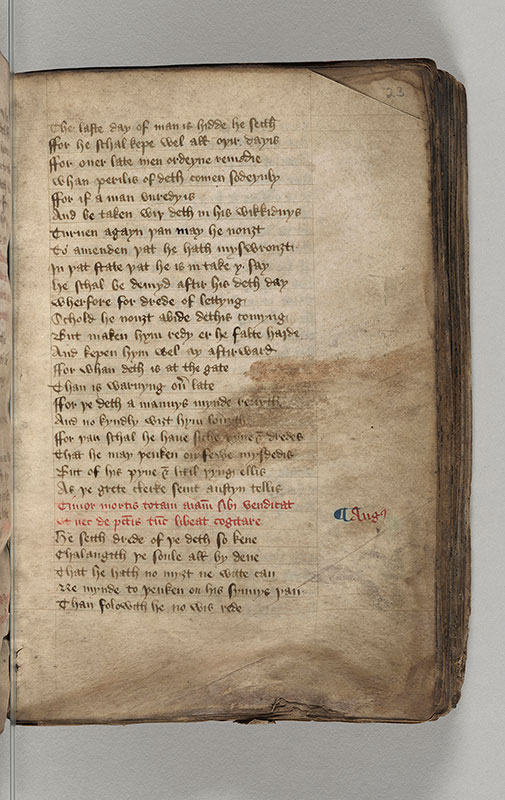 23
The laste day of man is hidde he seith
ffor he schal kepe wel all oþir dayis
ffor ouer late men ordeyne remedie
Whan perilis of deth comen sodeynly
ffor if a man vnredy is
And be taken wiþ deth in his wikkidnys
Turnen agayn þan may he nouȝt
To amenden þat he hath myswrouȝt
In þat state þat he is in take y say
He schal be demyd aftir his deth day
Wherfore for drede of lettyng
Schold he nouȝt abide dethis comyng
But maken hym redy er he falle harde
And kepen hym wel ay aftirward
ffor whan deth is at the gate
Than is warnyng ouer late
ffor þe deth a mannys mynde reuyth
And no kyndly wiȝt hym
ffor þan schal he haue siche pyne & dredes
That he may þenken on fewe mysdedis
But of his pyne & litil þyng ellis
As þe grete clerke seint austyn tellis
Timor mortis totam aiam sibi vendicat
Ut nec de pctis tunc libeat cogitare
¶ Augꝰ
He seith drede of þe deth so kene
Chalangith þe soule all by dene
That he hath no myȝt ne wate can
Ne mynde to þenken on his synnys þan
Than folowith he no wis rede